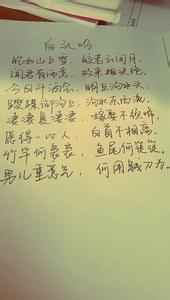 白头吟
皑如山上雪，皎若云间月。
闻君有两意，故来相决绝。
今日斗酒会，明旦沟水头。
躞蹀御沟上，沟水东西流。
凄凄复凄凄，嫁娶不须啼。
愿得一心人，白首不相离。
竹竿何袅袅，鱼尾何簁簁。
男儿重意气，何用钱刀为。